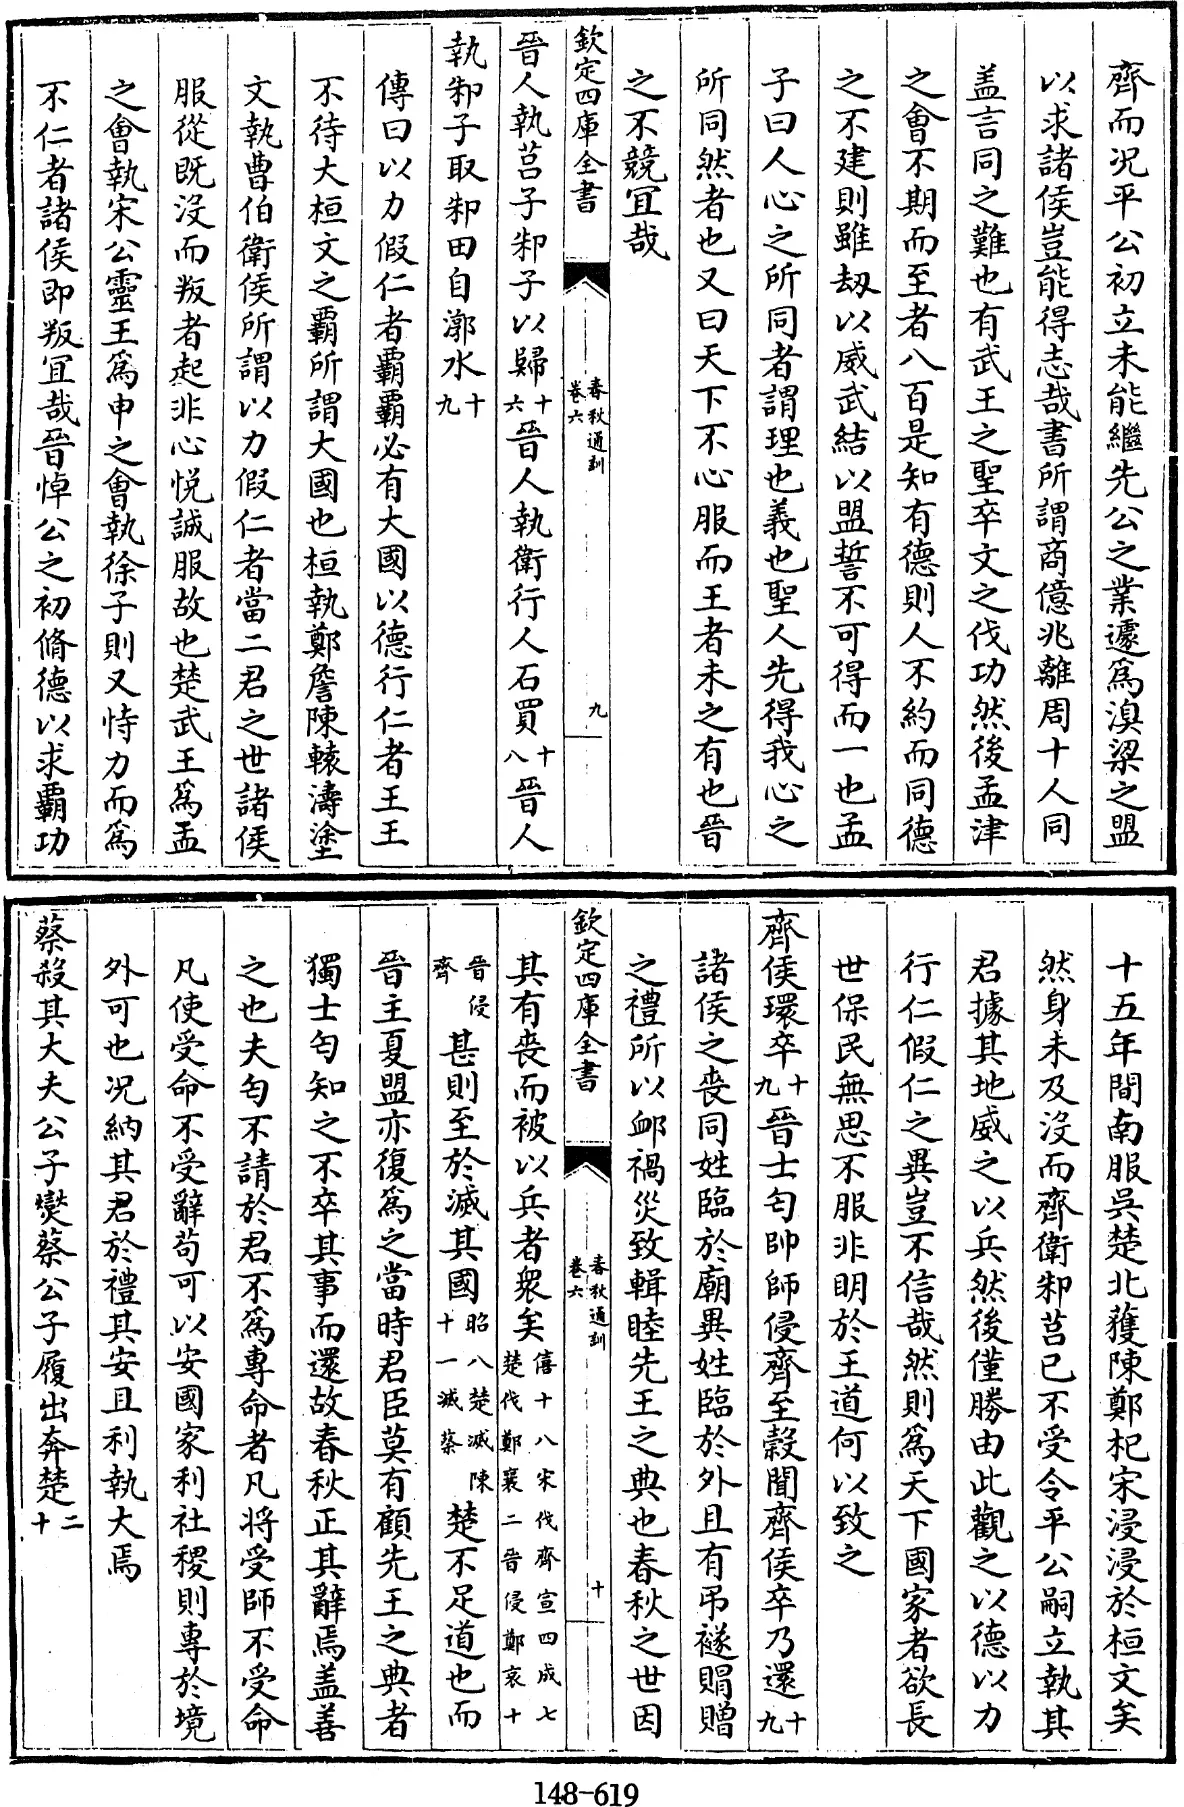 齊而况平公初立未能繼先公之業遽爲溴梁之盟
以求諸侯豈能得志哉書所謂商億兆離周十人同
盖言同之難也有武王之聖卒文之伐功然後孟津
之會不期而至者八百是知有德則人不約而同德
之不建則雖刼以威武結以盟誓不可得而一也孟
子曰人心之所同者謂理也義也聖人先得我心之
所同然者也又曰天下不心服而王者未之有也晉
之不競宜哉
欽定四庫全書
春秋通訓
卷六
九
晉人執莒子邾子以歸十六晉人執衛行人石買十八晉人
執邾子取邾田自漷水十九
傳曰以力假仁者霸霸必有大國以德行仁者王王
不待大桓文之霸所謂大國也桓執鄭詹陳轅濤塗
文執曹伯衛侯所謂以力假仁者當二君之世諸侯
服從既沒而叛者起非心悦誠服故也楚武王爲盂
之會執宋公靈王爲申之會執徐子則又恃力而爲
不仁者諸侯即叛宜哉晉悼公之初脩德以求霸功
十五年間南服吳楚北獲陳鄭杞宋浸浸於桓文矣
然身未及沒而齊衛邾莒已不受令平公嗣立執其
君據其地威之以兵然後僅勝由此觀之以德以力
行仁假仁之異豈不信哉然則爲天下國家者欲長
世保民無思不服非明於王道何以致之
齊侯環卒十九晉士匄帥師侵齊至穀聞齊侯卒乃還十九
諸侯之喪同姓臨於廟異姓臨於外且有弔襚賵贈
之禮所以卹禍災致輯睦先王之典也春秋之世因
欽定四庫全書
春秋通訓
卷六
十
其有喪而被以兵者衆矣僖十八宋伐齊宣四成七楚伐鄭襄二晉侵鄭哀十
晉侵齊甚則至於滅其國昭八楚滅陳十一滅蔡楚不足道也而
晉主夏盟亦復爲之當時君臣莫有顧先王之典者
獨士匄知之不卒其事而還故春秋正其辭焉盖善
之也夫匄不請於君不爲專命者凡將受師不受命
凡使受命不受辭苟可以安國家利社稷則專於境
外可也况納其君於禮其安且利執大焉
蔡殺其大夫公子燮蔡公子履出奔楚二十
148-619